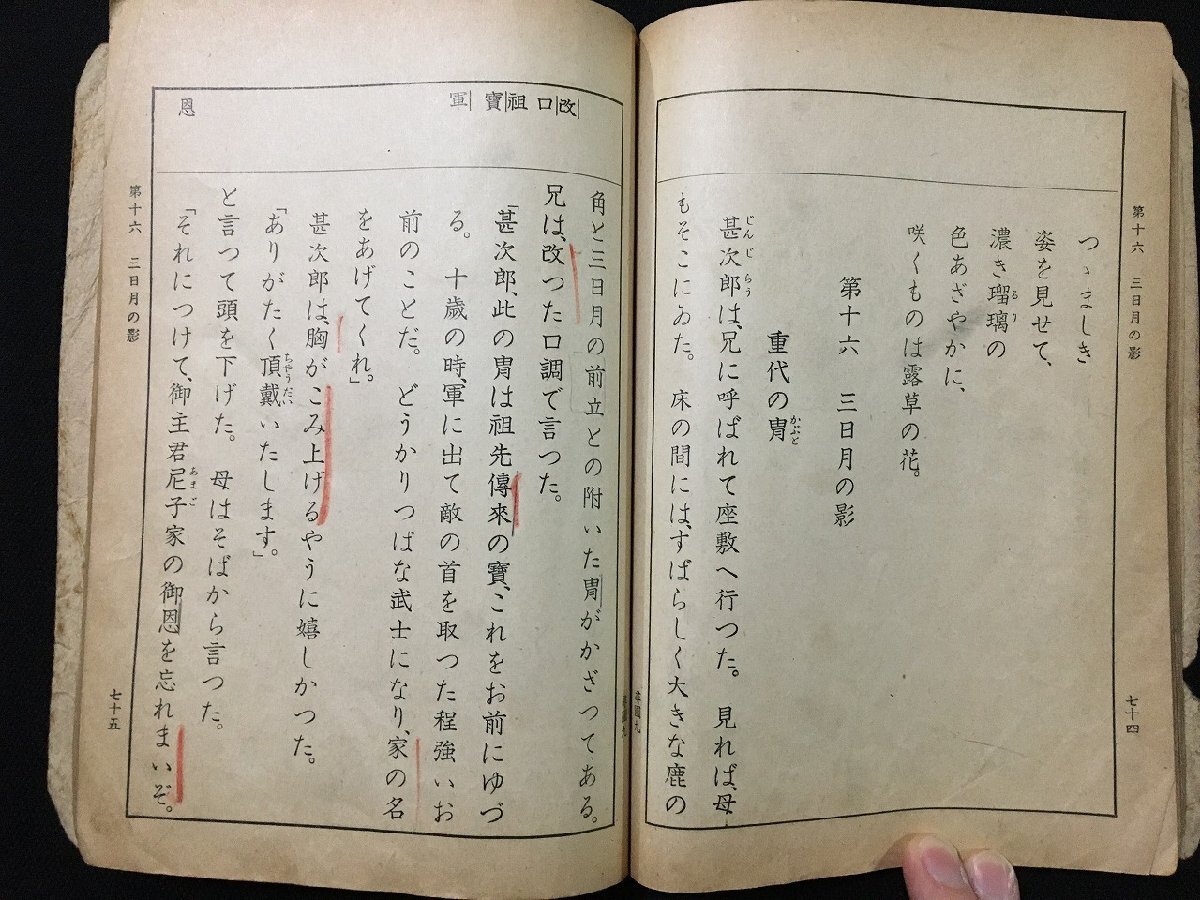 第十六 三日月の影
七十四
つゝましき
姿を見せて、
濃き瑠璃の
るり
色あざやかに、
咲くものは露草の花。
第十六 三日月の影
重代の冑
かぶと
甚次郎は、兄に呼ばれて座敷へ行つた。見れば、母
じんじらう
もそこにゐた。床の間には、すばらしく大きな鹿の
改口祖寶軍
恩
角と三日月の前立との附いた冑がかざつてある。
兄は、改つた口調で言つた。
「甚次郎、此の冑は祖先傳來の寶、これをお前にゆづ
る。十歳の時、軍に出て敵の首を取つた程強いお
前のことだ。どうかりつぱな武士になり、家の名
をあげてくれ。」
甚次郎は、胸がこみ上げるやうに嬉しかつた。
「ありがたく頂戴いたします。」
ちやうだい
と言つて頭を下げた。母はそばから言つた。
「それにつけて、御主君尼子家の御恩を忘れまいぞ。
あまご
第十六 三日月の影
七十五